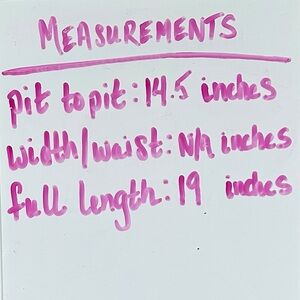 MEASUREMENTS
pit to pit: 14.5 inches
width/waist: N/A inches
full length: 19 inches